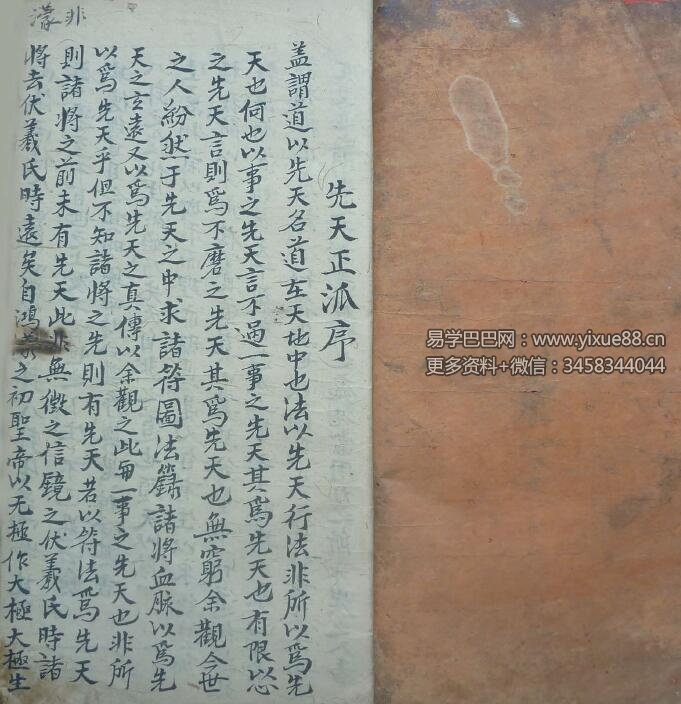 先天正派序
蓋謂道以先天名道在天地中也法以先天行法非所以為先
天也何也以事之先天言不過一事之先天其為先天也有限以心
之先天言則為不磨之先天其為先天也無窮余觀今世
之人紛然于先天之中求諸符圖法籙諸將血脉以為先
天之玄遠又以為先天之真傳以余觀之此毎一事之先天也非所
以為先天乎但不知諸將之先則有先天若以符法為先天
則諸將之前未有先天此非無徴之信鏡之伏羲氏時諸
將去伏羲氏時遠矣自鴻之初聖帝以无極作大極大極生
非
濛
易学巴巴网：www.yixue88.cn
更多资料+微信：3458344044